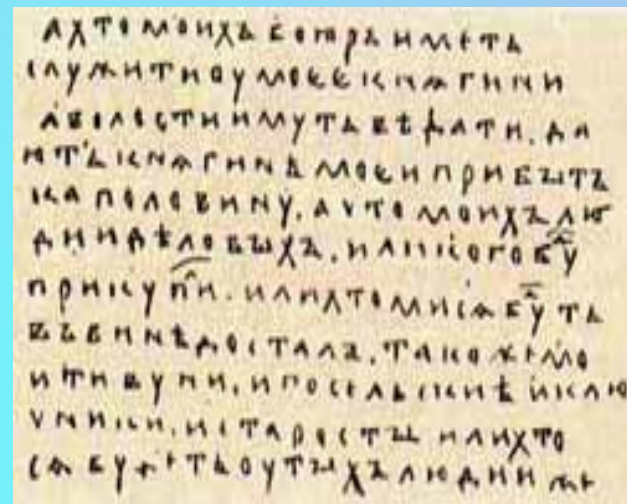 А ХТО МОИХЪ БОꙖРЪ ИМЕТЬ
СЛУЖИТИ ОУ МОЕЕ КНѦГИНИ
А ВОЛОСТИ ИМУТЬ ВѢДАТИ, ДА
ЮТЬ КНѦГИНѢ МОЕИ ПРИБЫТЪ
КА ПОЛОВИНУ. А ЧТО МОИХЪ ЛЮ
ДИИ ДѢЛОВЫХЪ, ИЛИ КОГО БУ
ПРИКУПИ. ИЛИ ХТО МИ СѦ БУ ТЬ
ВЪ ВИНѢ ДОСТАЛЪ, ТАКОЖЕ МО
И ТИВУНИ, И ПОСЕЛЬСКИѢ И КЛЮ
ЧНИКИ, И СТАРОСТЫ ИЛИ ХТО
СѦ БУДЕТЬ ОУ ТЫХЪ ЛЮДИИ